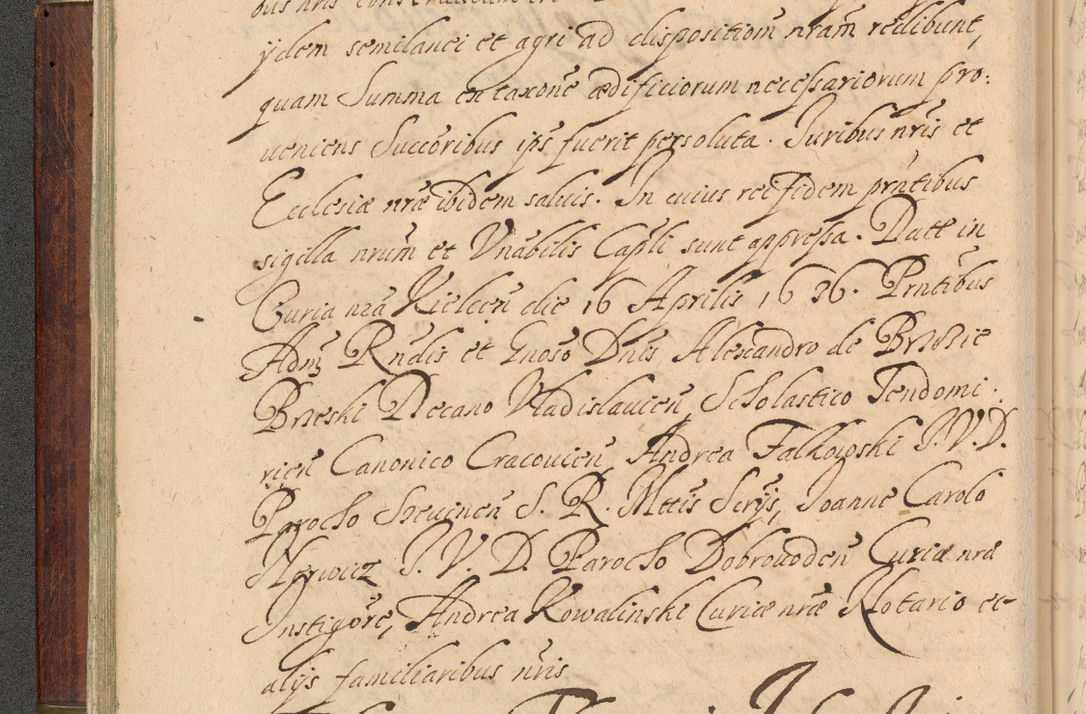 ydem semilanei et agri ad dispositiom nram redibunt,
quam Summa ex taxone ædificiorum necessariorum pro:
ueniens Succoribus ips fuerit persoluta. Juribus nris et
Ecclesiæ nræ ibidem saluis. In cuius rei fidem prntibus
sigilla nrum et Vnabilis Capli sunt appressa. Datt in
Curia nra Kielcen die 16 Aprilis 1636. Prntibus
Adm Rndis et Gnoso Dnis Alexandro de Brzezie
Brzeski Decano Vladislauien, Scholastico Sendomi:
rien Canonico Cracouien Andrea Falkowski J. V. D.
Parocho S. R. Mttis Scrijs, Joanne Carolo
J. V. D. Parocho Dobrouoden Curiæ nræ
Instigore, Andrea Kowalinski Curiæ nræ Notario et
alijs familiaribus nris